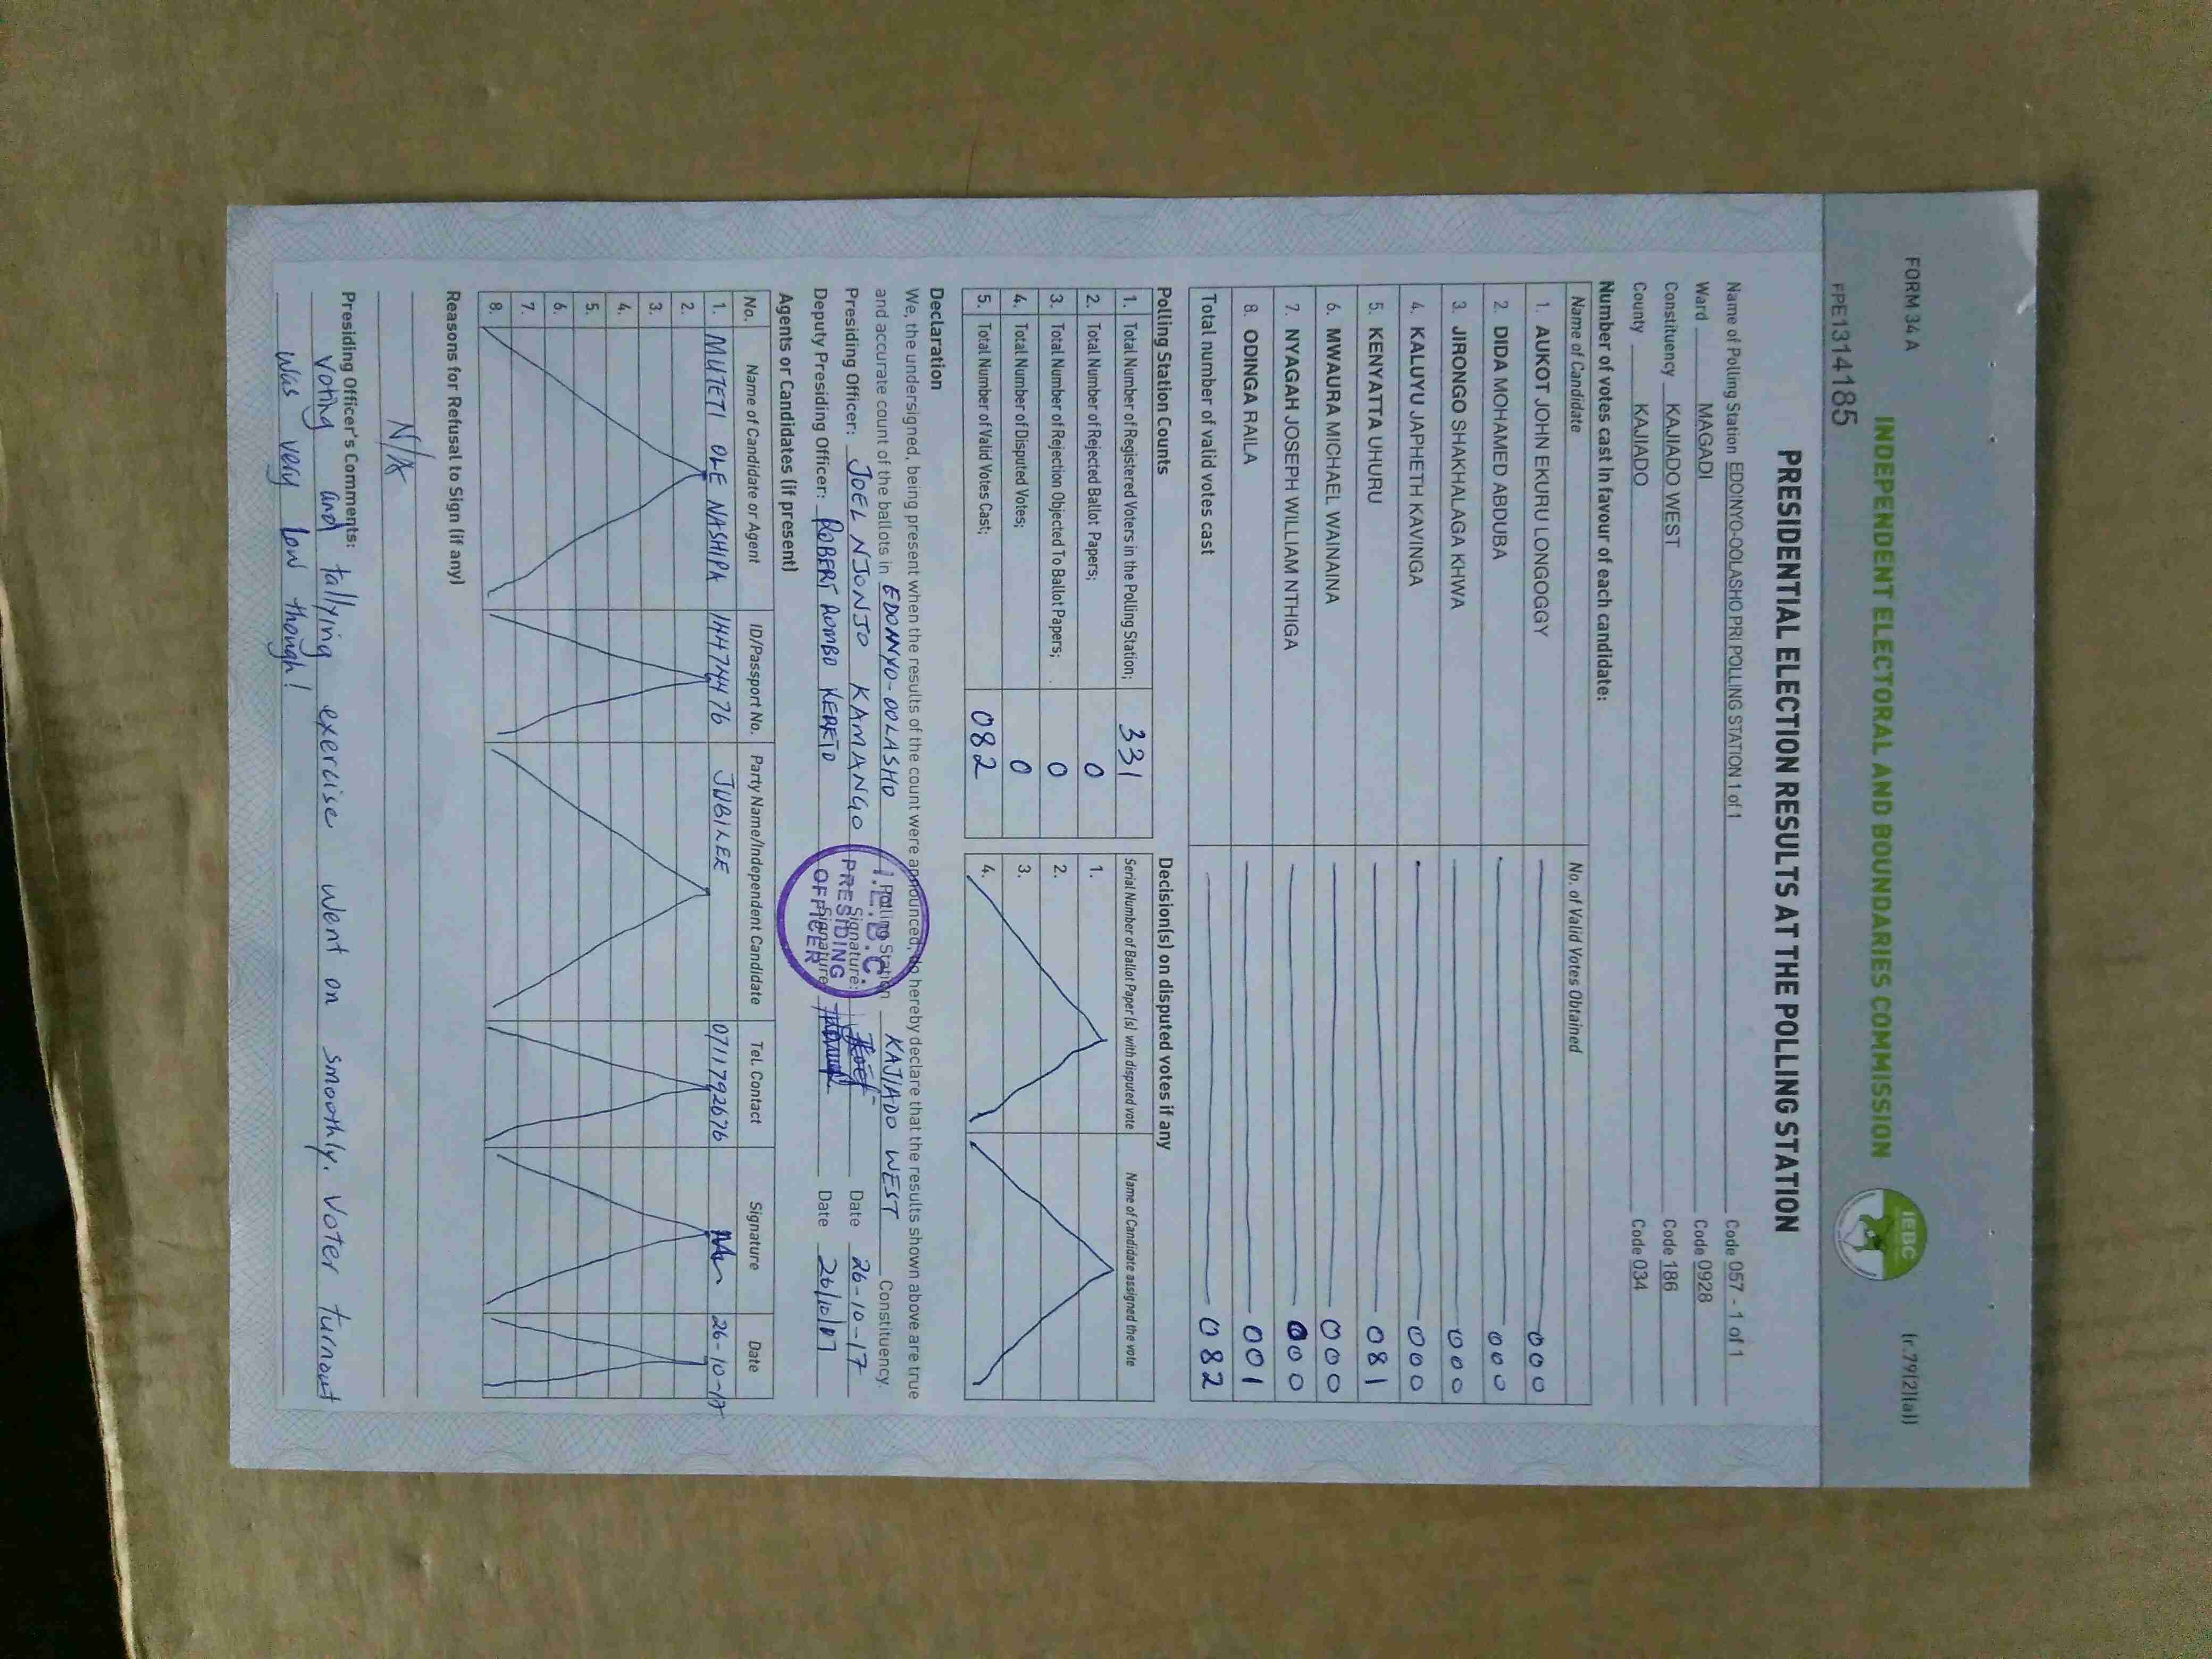 FORM 34 A
(r.79(2)(a))
INDEPENDENT ELECTORAL AND BOUNDARIES COMMISSION
IEBC
FPE1314185
PRESIDENTIAL ELECTION RESULTS AT THE POLLING STATION
Name of Polling Station EDOINYO-OOLASHO PRI POLLING STATION 1 of 1 Code 057 - 1 of 1
Ward MAGADI Code 0928
Constituency KAJIADO WEST Code 186
County KAJIADO Code 034
Number of votes cast in favour of each candidate:
Name of Candidate No. of Valid Votes Obtained
1. AUKOT JOHN EKURU LONGOGGY 000
2. DIDA MOHAMED ABDUBA 000
3. JIRONGO SHAKHALAGA KHWA 000
4. KALUYU JAPHETH KAVINGA 000
5. KENYATTA UHURU 081
6. MWAURA MICHAEL WAINAINA 000
7. NYAGAH JOSEPH WILLIAM NTHIGA 000
8. ODINGA RAILA 001
Total number of valid votes cast 082
Polling Station Counts
1. Total Number of Registered Voters in the Polling Station; 331
2. Total Number of Rejected Ballot Papers; 0
3. Total Number of Rejection Objected To Ballot Papers; 0
4. Total Number of Disputed Votes; 0
5. Total Number of Valid Votes Cast; 082
Decision(s) on disputed votes if any
Serial Number of Ballot Paper(s) with disputed vote Name of Candidate assigned the vote
1.
2.
3.
4.
Declaration
We, the undersigned, being present when the results of the count were announced, do hereby declare that the results shown above are true
and accurate count of the ballots in EDONYO-OOLASHO Polling Station KAJIADO WEST Constituency.
Presiding Officer: JOEL NJONJO KAMANGO Signature: Date 26-10-17
Deputy Presiding Officer: ROBERT ROMBO KERETO Signature Date 26/10/17
I.E.B.C
PRESIDING
OFFICER
Agents or Candidates (if present)
No. Name of Candidate or Agent ID/Passport No. Party Name/Independent Candidate Tel. Contact Signature Date
1. MUTETI OLE NASHIPA JUBILEE 0711792676 26-10-17
2.
3.
4.
5.
6.
7.
8.
Reasons for Refusal to Sign (if any)
N/A
Presiding Officer's Comments:
Voting and tallying exercise went on smoothly. Voter turnout
was very low though!